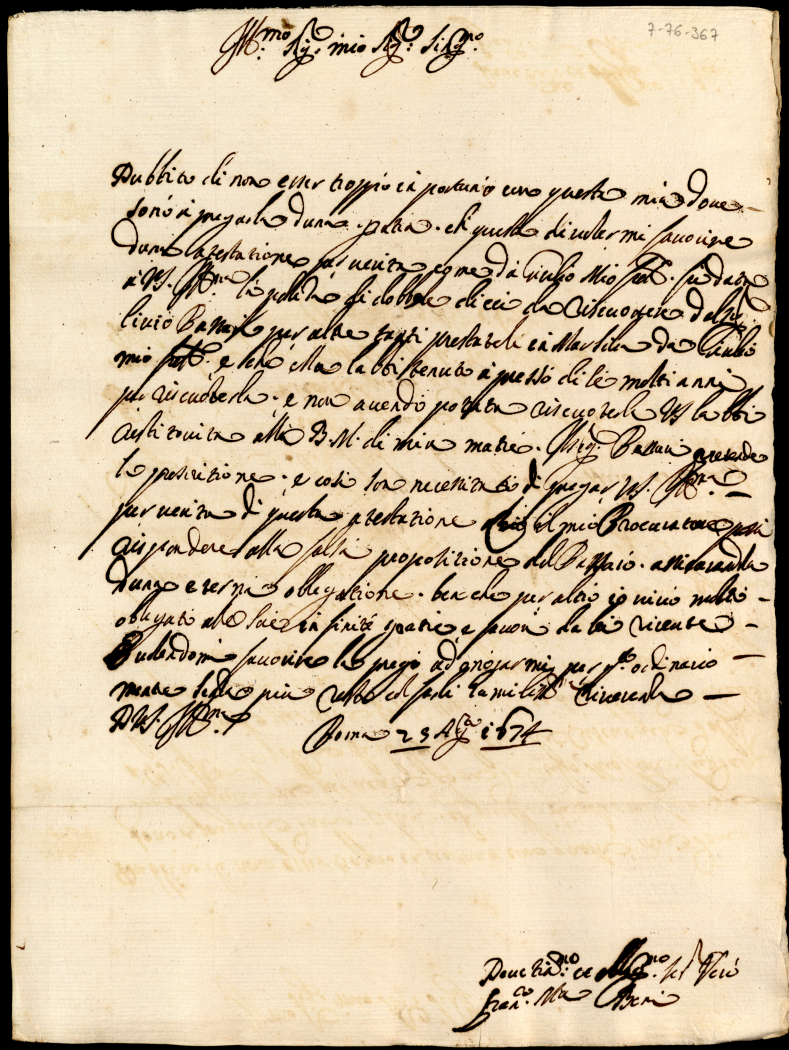 7-76-367
Ill.mo Sig.r mio Sig.r Sing.mo
Dubbito di non esser troppo inportuno con questa mia dove
sono a pregarla duna gratia e di questa di volermi favorire
duna atestatione per verità come dà Giulio Mio fratt.
a V.S. Ill.ma la polida di doble dieci da riscuotere dal Sig.r
Livio Bassi per altre tanti prestateli in Marsilia da Giulio
mio e che ella labbi tenuto apresso di lé molti anni
per riscuoterla e non avendo potuta riscuoterla VS labbi
restituita alla B.M. di mia matre. Il Sig.r Bassi pretende
la prescritione e cosi son necessitato di pregar V.S. Ill.ma
per verita di questa atestatione il mio Procuratore possi
rispondere alla falsa propositione del assicurandola
duna eterna obbligatione ben che per altro io vivo molto
obligato alle Sue infinite gratie e favori da lei ricevute
favorire la prego ad per p.o ordinario
mentre più resto col farli humiliss.a riverenza
D V.S. Ill.ma
Roma 23 1674
Devotis.mo et obblig.mo Ser. Vero
Fran.co M.a Beni